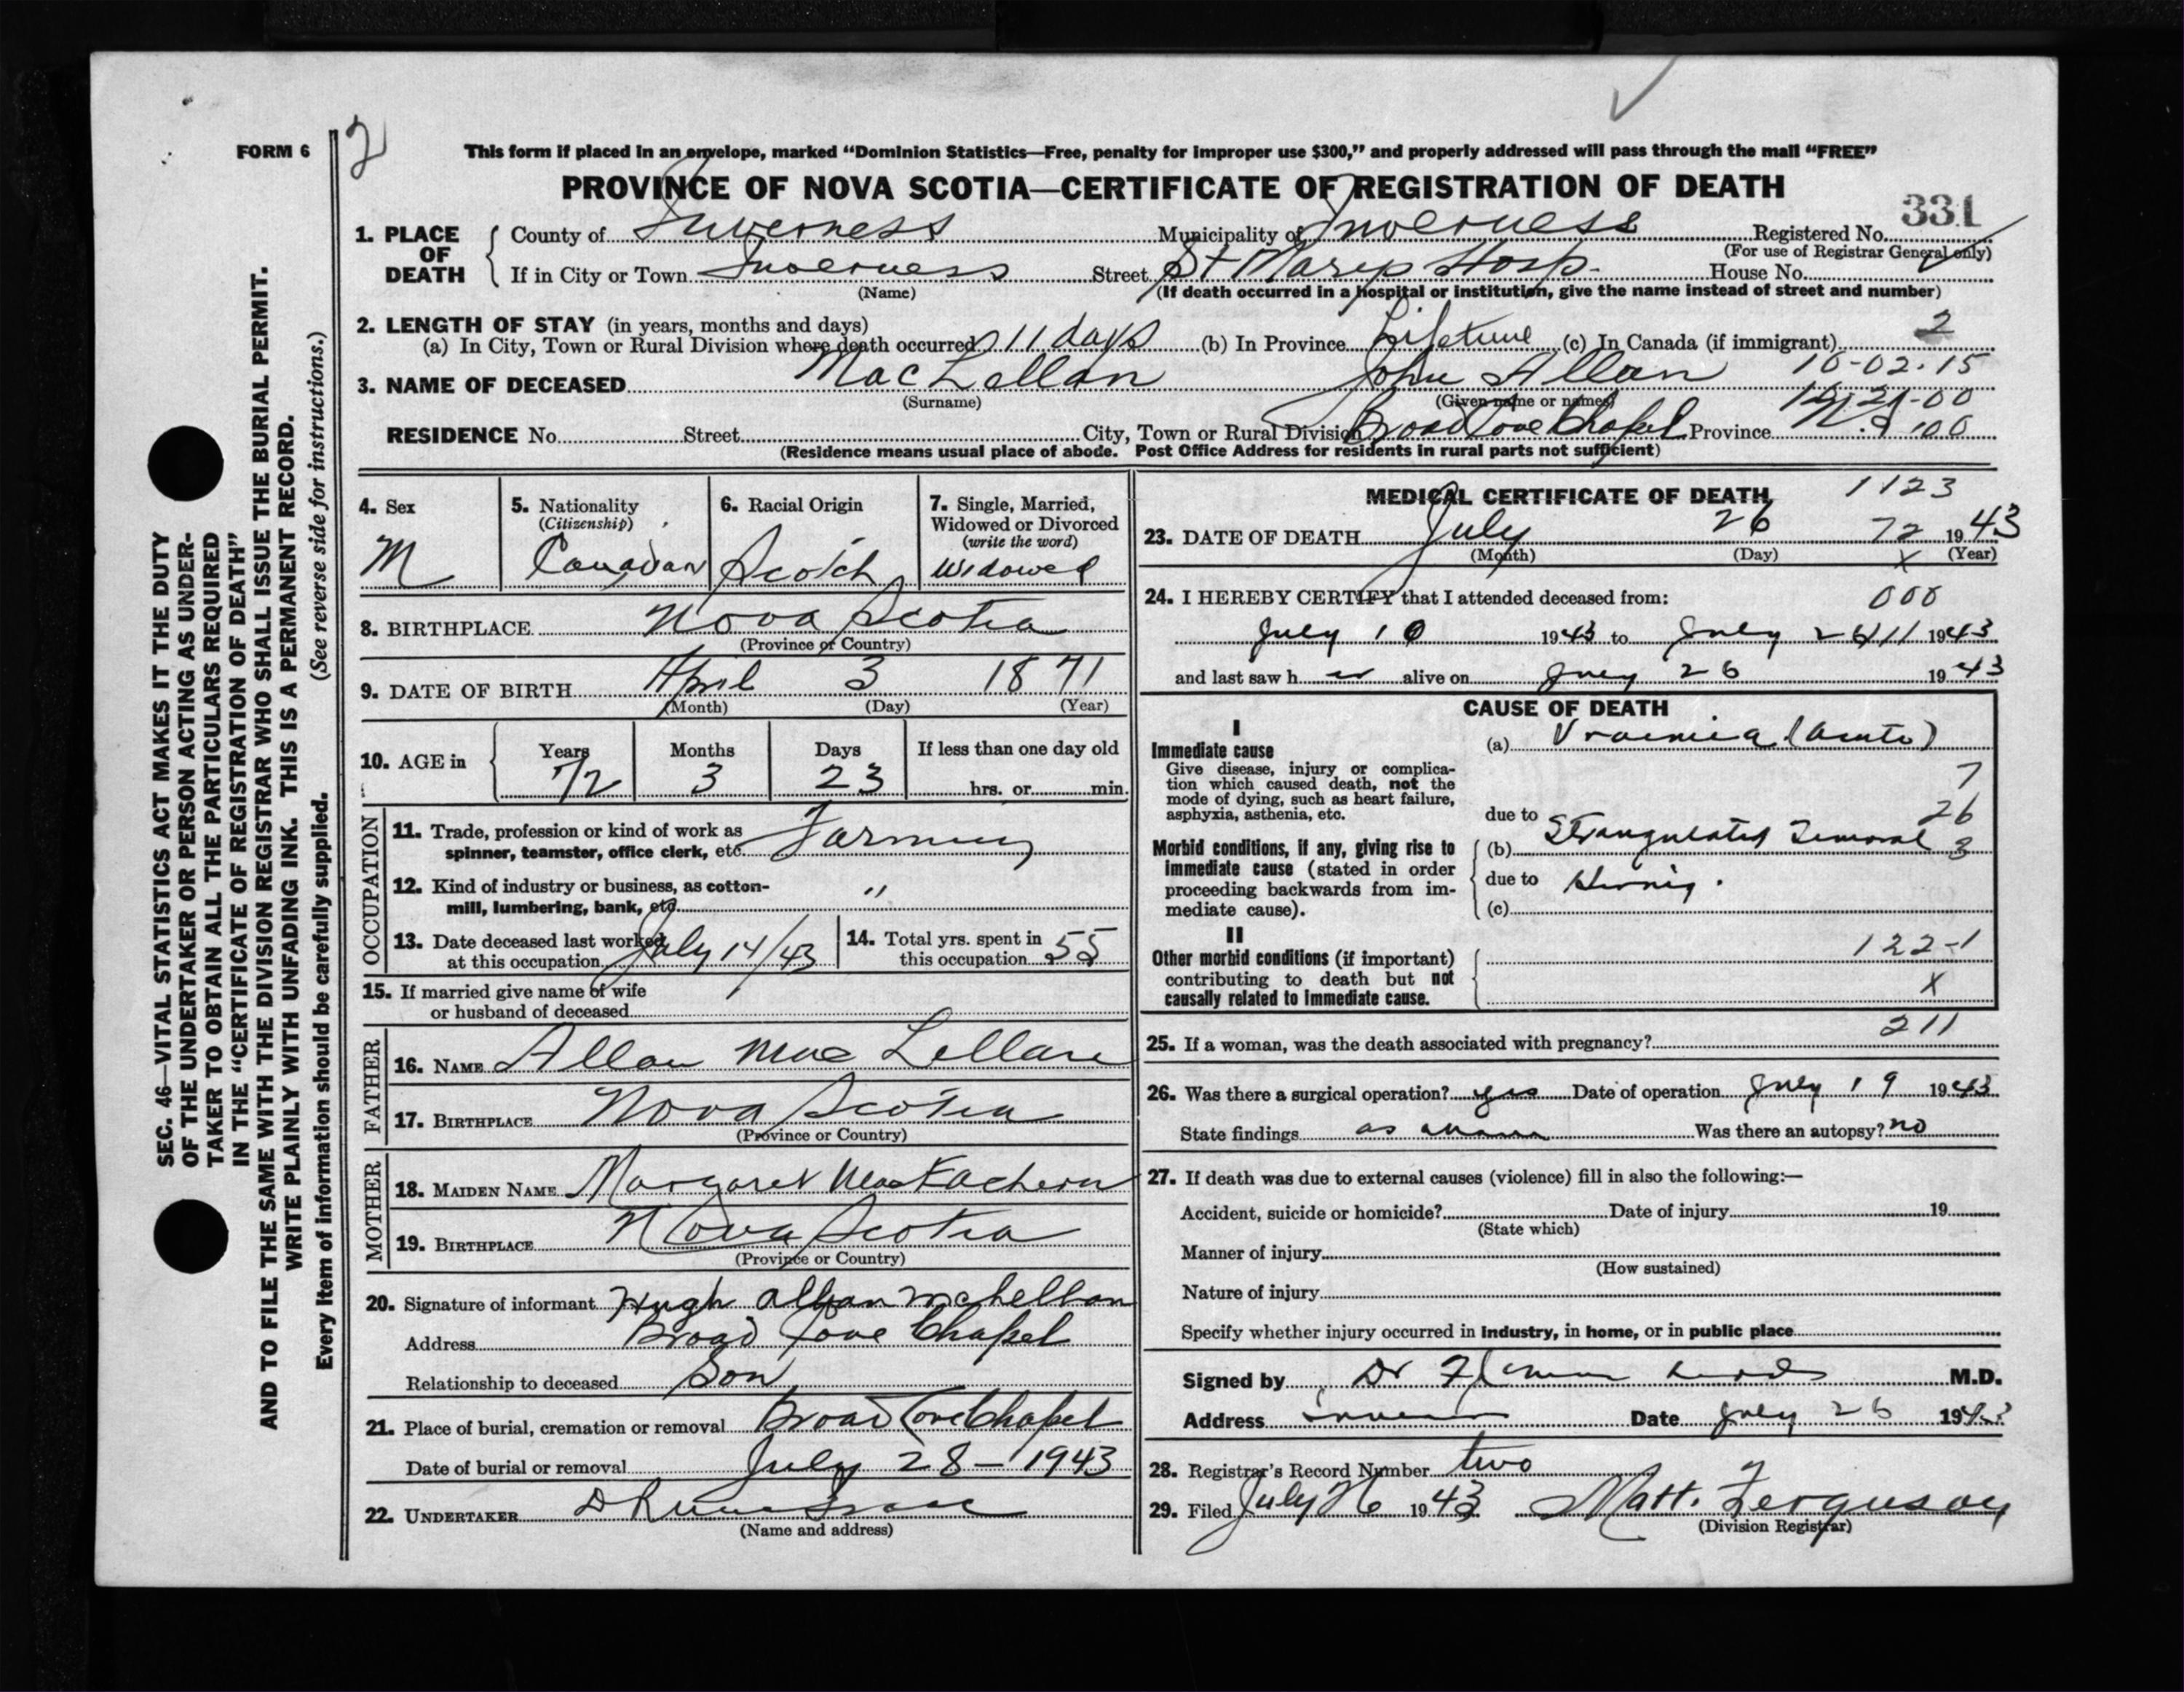 FORM 6
2
This form if placed in an envelope, marked “Dominion Statistics—Free, penalty for improper use $300,” and properly addressed will pass through the mail “FREE”
PROVINCE OF NOVA SCOTIA—CERTIFICATE OF REGISTRATION OF DEATH
331
1. PLACE OF DEATH { County of Inverness Municipality of Inverness Registered No.
(For use of Registrar General only)
If in City or Town Inverness Street St Marys Hosp. House No.
(Name) (If death occurred in a hospital or institution, give the name instead of street and number)
2. LENGTH OF STAY (in years, months and days)
(a) In City, Town or Rural Division where death occurred 11 days (b) In Province Lifetime (c) In Canada (if immigrant) 2
10-02.15
3. NAME OF DECEASED MacLellan John Allan
(Surname) (Given name or names)
RESIDENCE No. Street City, Town or Rural Division Broad Cove Chapel Province N.S 100
(Residence means usual place of abode. Post Office Address for residents in rural parts not sufficient)
SEC. 46—VITAL STATISTICS ACT MAKES IT THE DUTY
OF THE UNDERTAKER OR PERSON ACTING AS UNDER-
TAKER TO OBTAIN ALL THE PARTICULARS REQUIRED
IN THE “CERTIFICATE OF REGISTRATION OF DEATH”
AND TO FILE THE SAME WITH THE DIVISION REGISTRAR WHO SHALL ISSUE THE BURIAL PERMIT.
WRITE PLAINLY WITH UNFADING INK. THIS IS A PERMANENT RECORD.
Every item of information should be carefully supplied. (See reverse side for instructions.)
4. Sex
M
5. Nationality
(Citizenship)
Canadian
6. Racial Origin
Scotch
7. Single, Married,
Widowed or Divorced
(write the word)
Widowed
8. BIRTHPLACE Nova Scotia
(Province or Country)
9. DATE OF BIRTH April 3 1871
(Month) (Day) (Year)
10. AGE in { Years Months Days If less than one day old
72 3 23 hrs. or min.
OCCUPATION
11. Trade, profession or kind of work as
spinner, teamster, office clerk, etc. Farming
12. Kind of industry or business, as cotton-
mill, lumbering, bank, etc. "
13. Date deceased last worked
at this occupation July 14/43
14. Total yrs. spent in
this occupation 55
15. If married give name of wife
or husband of deceased
FATHER
16. NAME Allan MacLellan
17. BIRTHPLACE Nova Scotia
(Province or Country)
MOTHER
18. MAIDEN NAME Margaret MacEachern
19. BIRTHPLACE Nova Scotia
(Province or Country)
20. Signature of informant Hugh Allan McLellan
Address Broad Cove Chapel
Relationship to deceased Son
21. Place of burial, cremation or removal Broad Cove Chapel
Date of burial or removal July 28 - 1943
22. UNDERTAKER
(Name and address)
MEDICAL CERTIFICATE OF DEATH 1123
23. DATE OF DEATH July 26 72 1943
(Month) (Day) x (Year)
24. I HEREBY CERTIFY that I attended deceased from: 000
July 10 1943 to July 26 1943
and last saw h alive on July 26 1943
CAUSE OF DEATH
I
Immediate cause
Give disease, injury or complica-
tion which caused death, not the
mode of dying, such as heart failure,
asphyxia, asthenia, etc.
(a) Uraemia (acute)
7
26
3
Morbid conditions, if any, giving rise to
immediate cause (stated in order
proceeding backwards from im-
mediate cause).
due to
(b) Strangulated Femoral
due to Hernia.
(c)
II
Other morbid conditions (if important)
contributing to death but not
causally related to immediate cause.
122-1
x
211
25. If a woman, was the death associated with pregnancy?
26. Was there a surgical operation? yes Date of operation July 19 1943
State findings as above Was there an autopsy? no
27. If death was due to external causes (violence) fill in also the following:—
Accident, suicide or homicide? Date of injury 19
(State which)
Manner of injury
(How sustained)
Nature of injury
Specify whether injury occurred in industry, in home, or in public place
Signed by Dr M.D.
Address Date July 26 1943
28. Registrar's Record Number two
29. Filed July 26 1943 Matt. Ferguson
(Division Registrar)